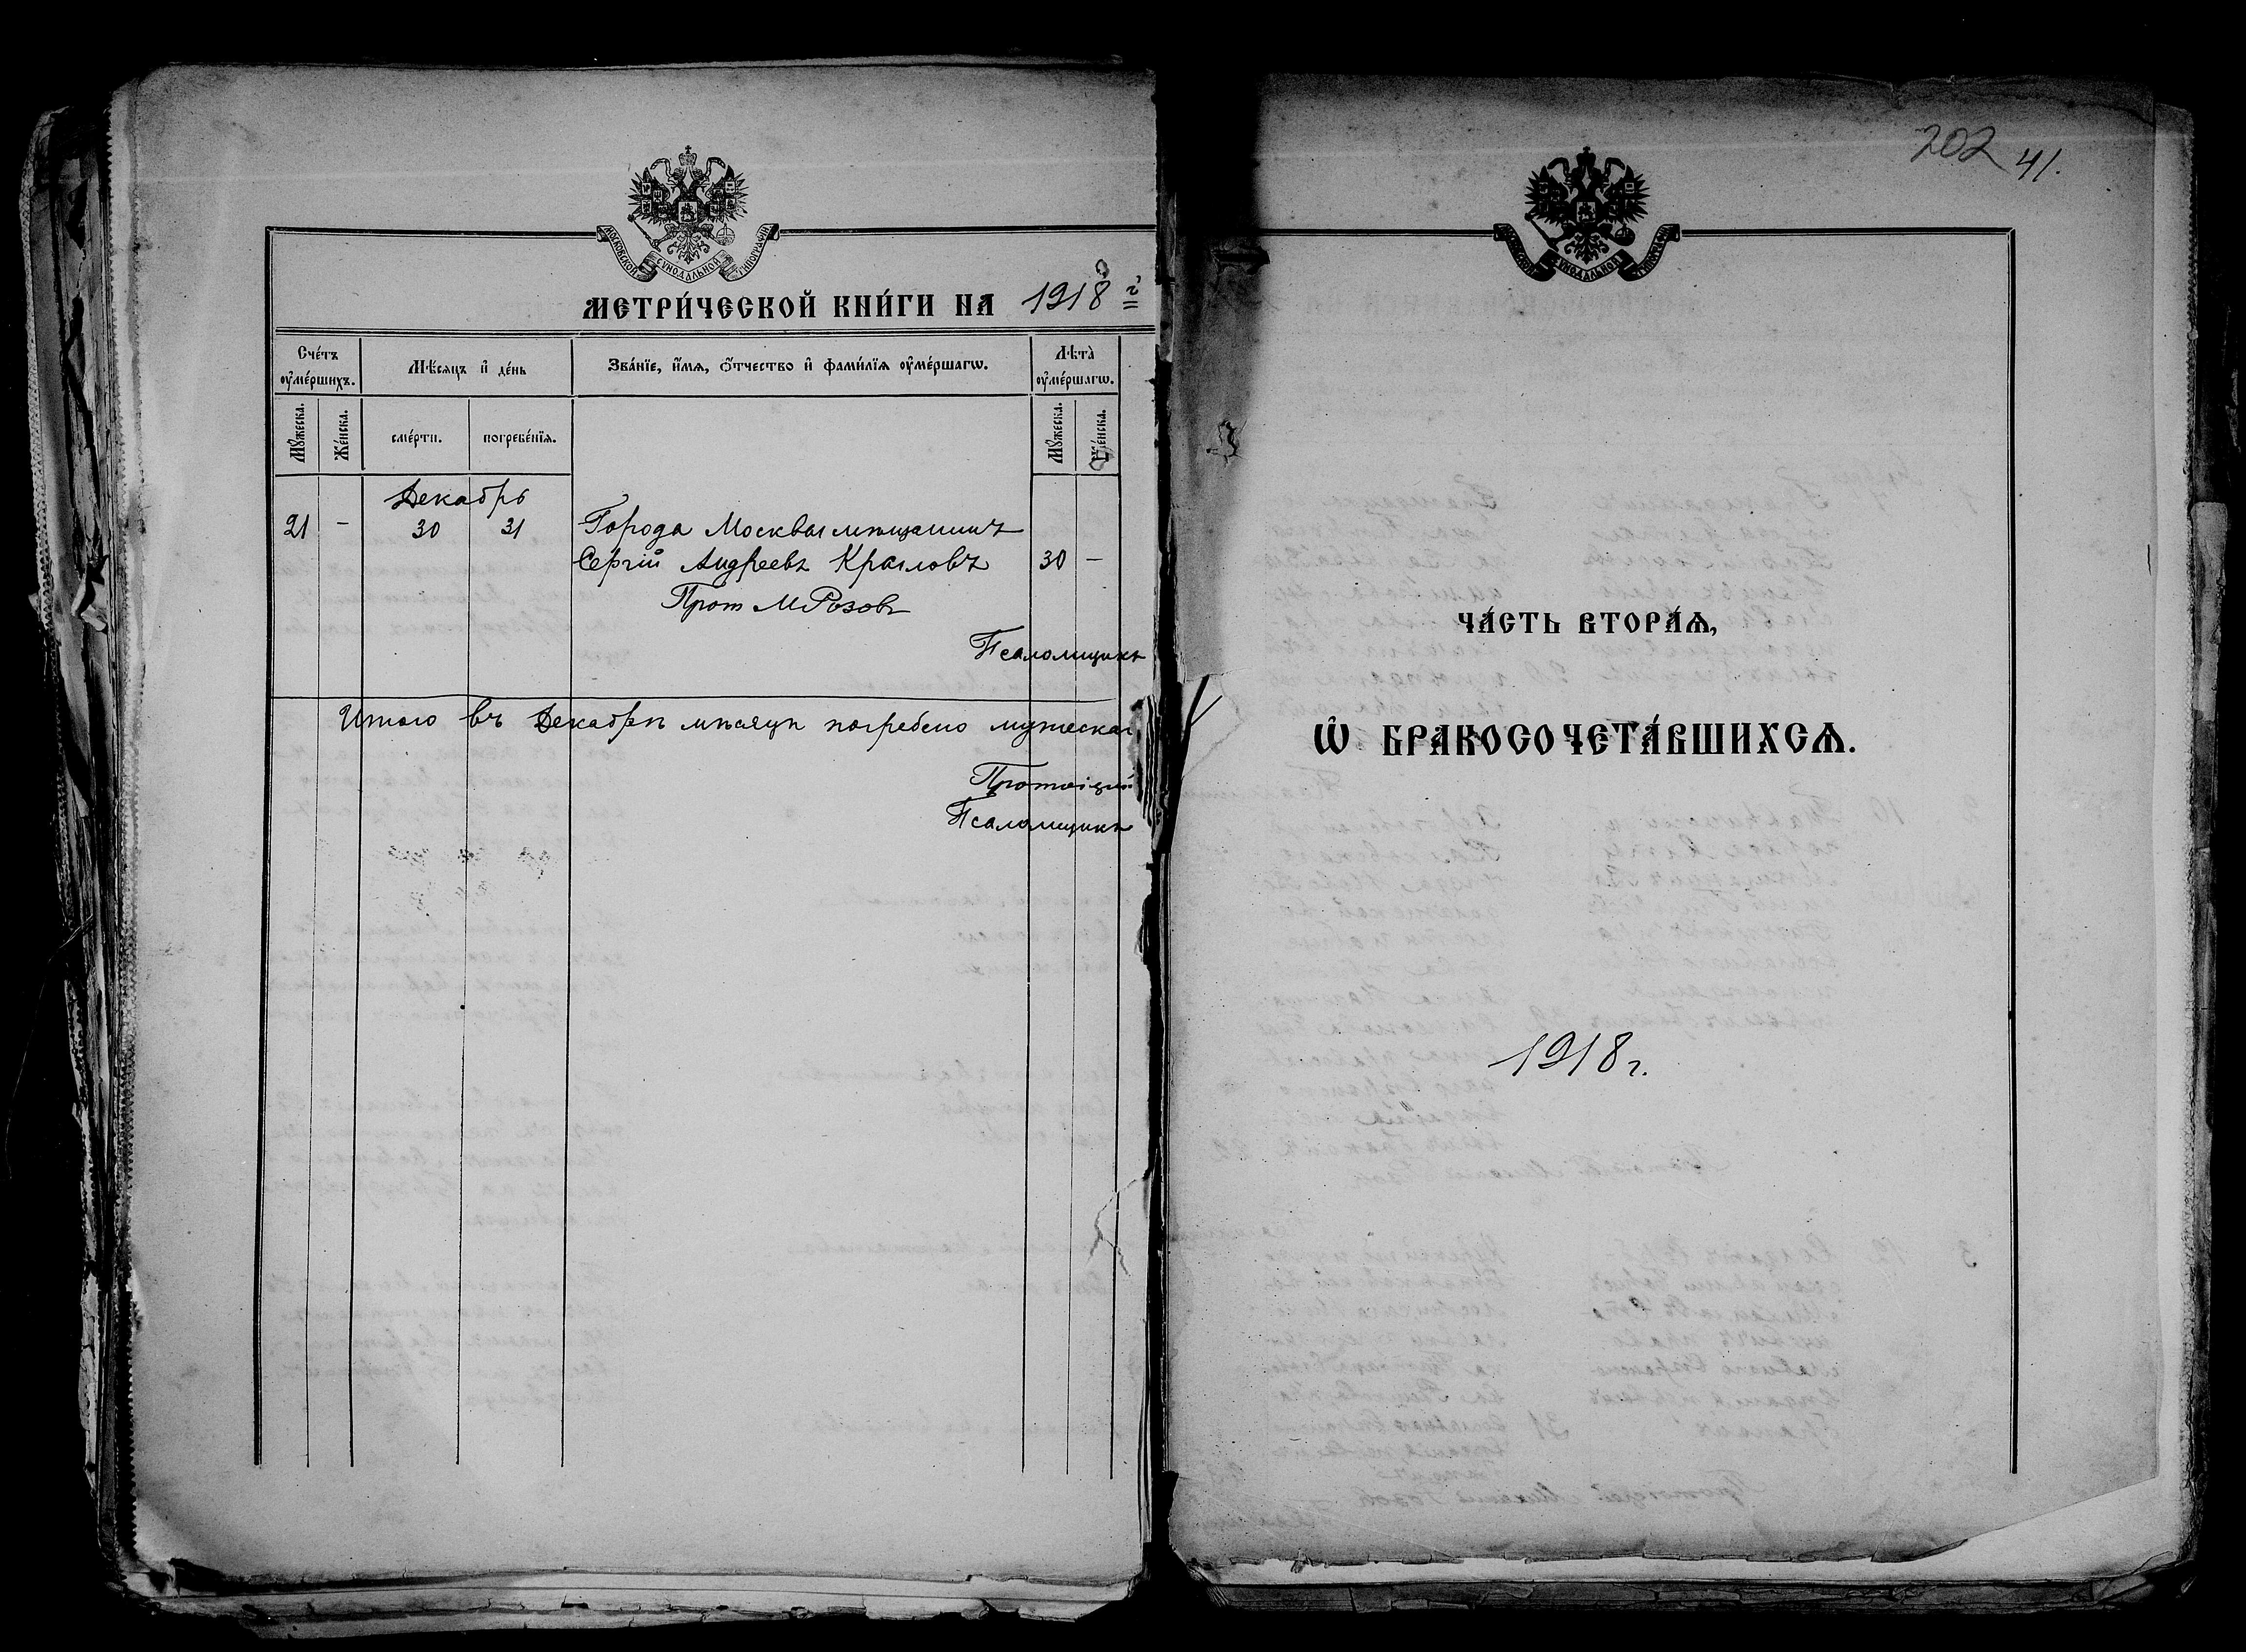 МОСКОВСКОЙ СѴНОДАЛЬНОЙ ТИПОГРАФІИ
МЕТРИ́ЧЕСКОЙ КНИ́ГИ НА 1918 г
Сче́тъ ᲂу҆ме́ршихъ.
Мѣ́сяцъ и҆ де́нь
Зва́нїе, и҆́мѧ, ѻ҆́тчество и҆ фами́лїѧ ᲂу҆ме́ршагѡ.
Лѣта̀ ᲂу҆ме́ршагѡ.
Мꙋ́жеска.
Же́нска.
сме́рти.
погребе́нїѧ.
Мꙋ́жеска.
Же́нска.
Декабрь
21 - 30 31 Города Москвы мѣщанинъ
Сергій Андреевъ Крыловъ 30 —
Прот М Розовъ
Псаломщикъ
Итого въ Декабрѣ мѣсяцѣ погребено мужеска
Протоіерей
Псаломщикъ
202 41.
МОСКОВСКОЙ СѴНОДАЛЬНОЙ ТИПОГРАФІИ
ЧА́СТЬ ВТОРА́Ѧ,
Ѡ҆ БРАКОСОЧЕТА́ВШИХСѦ.
1918 г.